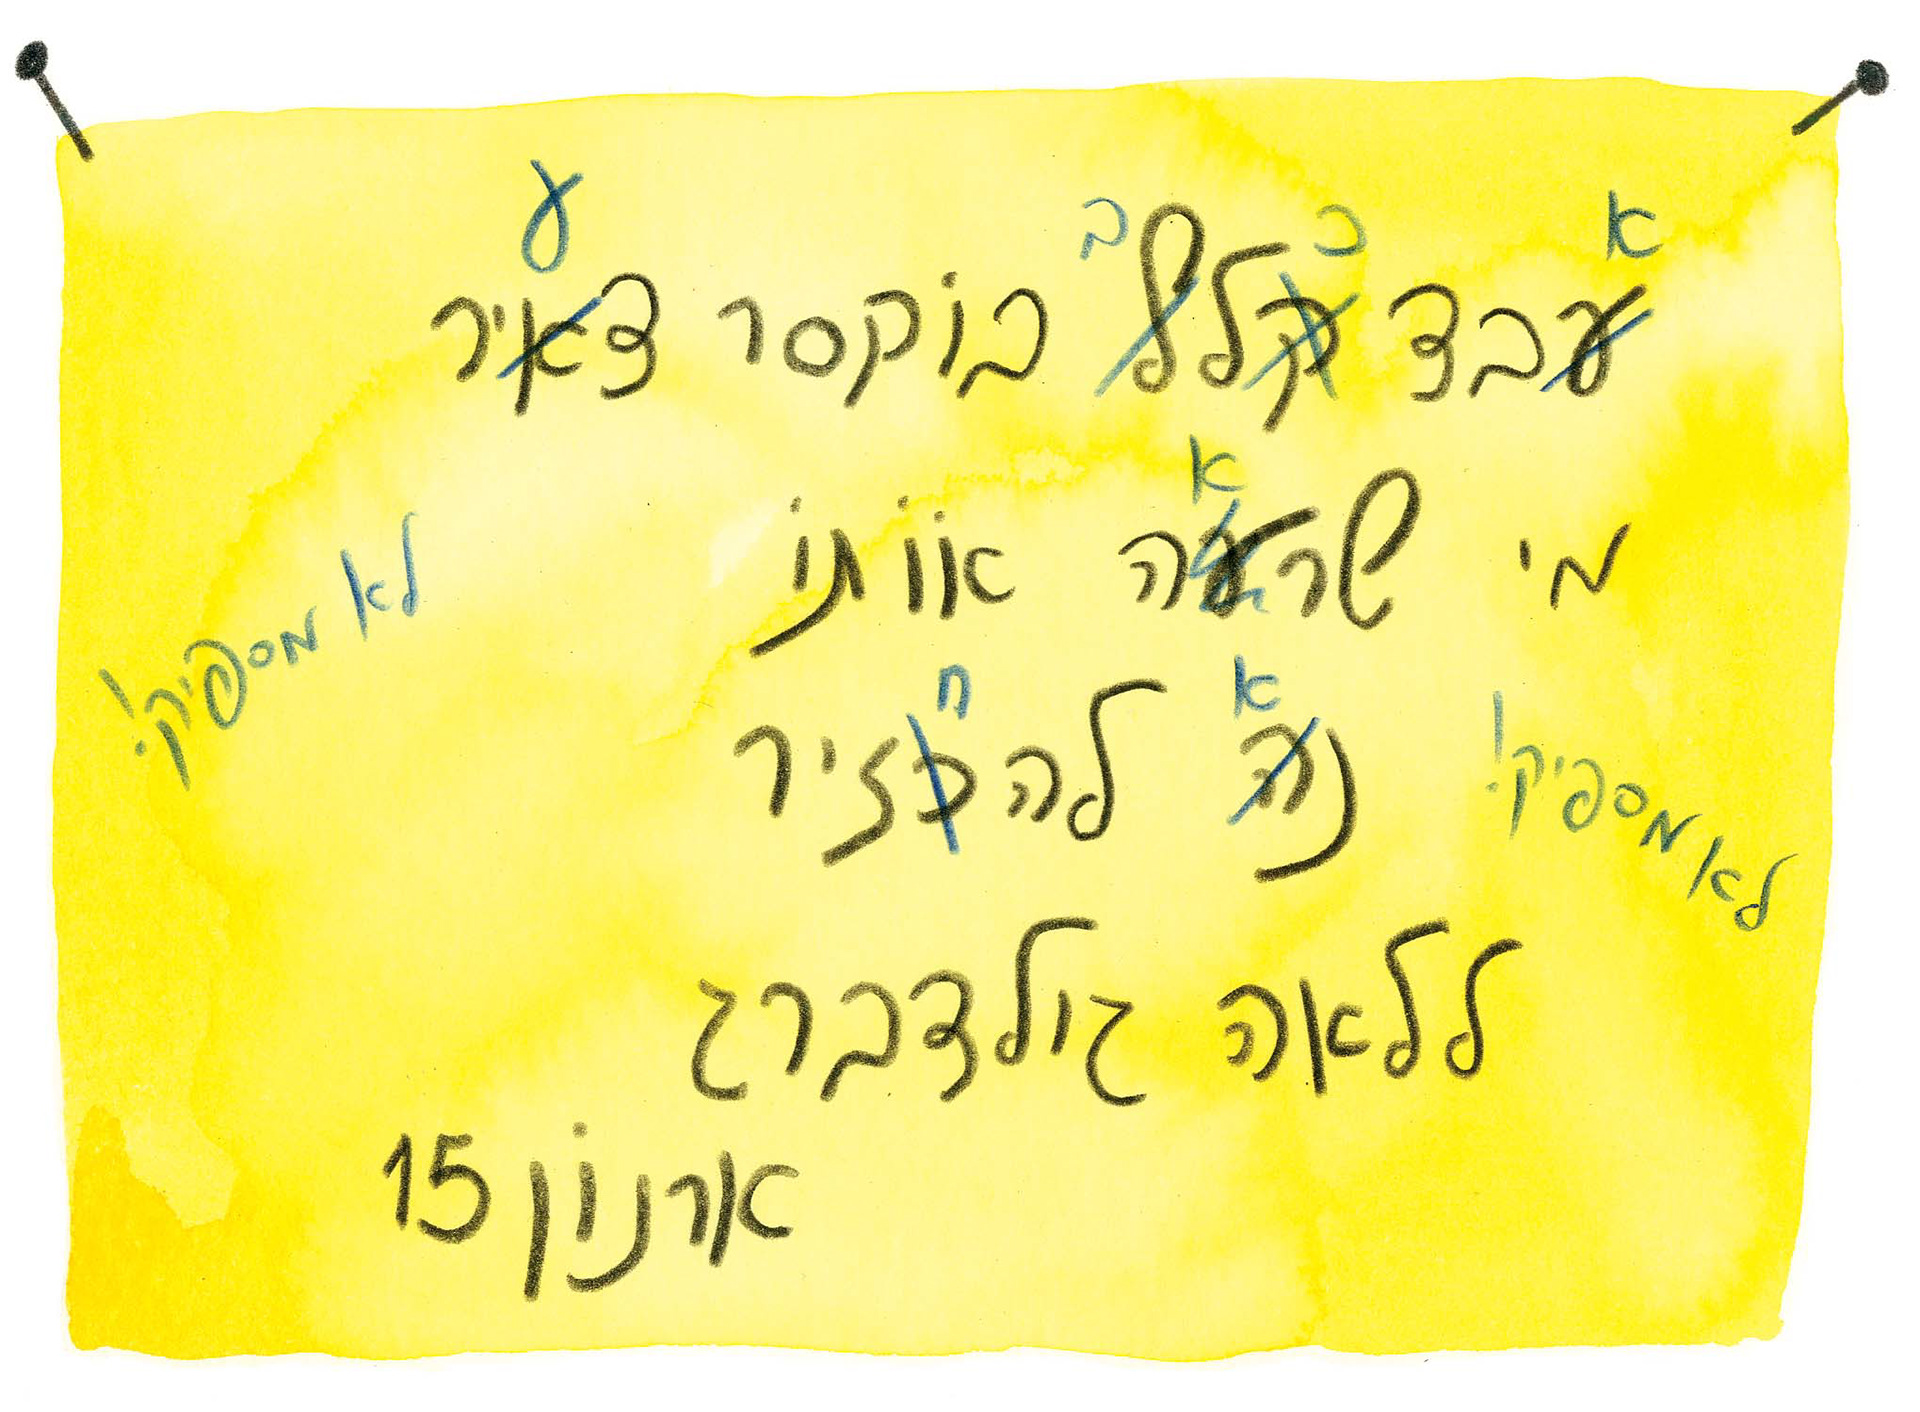 א כ ב ע
עבד קלף בוקסר צאיר
א
מי שרעה אותו
לא מספיק!
א ח
נה להכזיר
לא מספיק!
ללאה גולדברג
ארנון 15